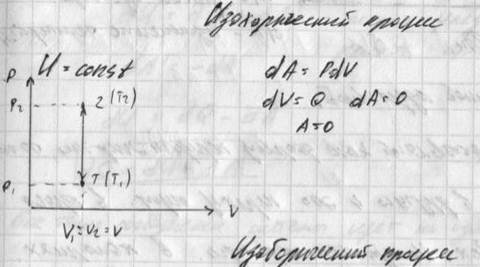 Изохорический процесс
P
U = const
dA = PdV
P₂
2 (T₂)
dV = 0 dA = 0
A = 0
P₁
1 (T₁)
V
V₁ = V₂ = V
Изобарический процесс